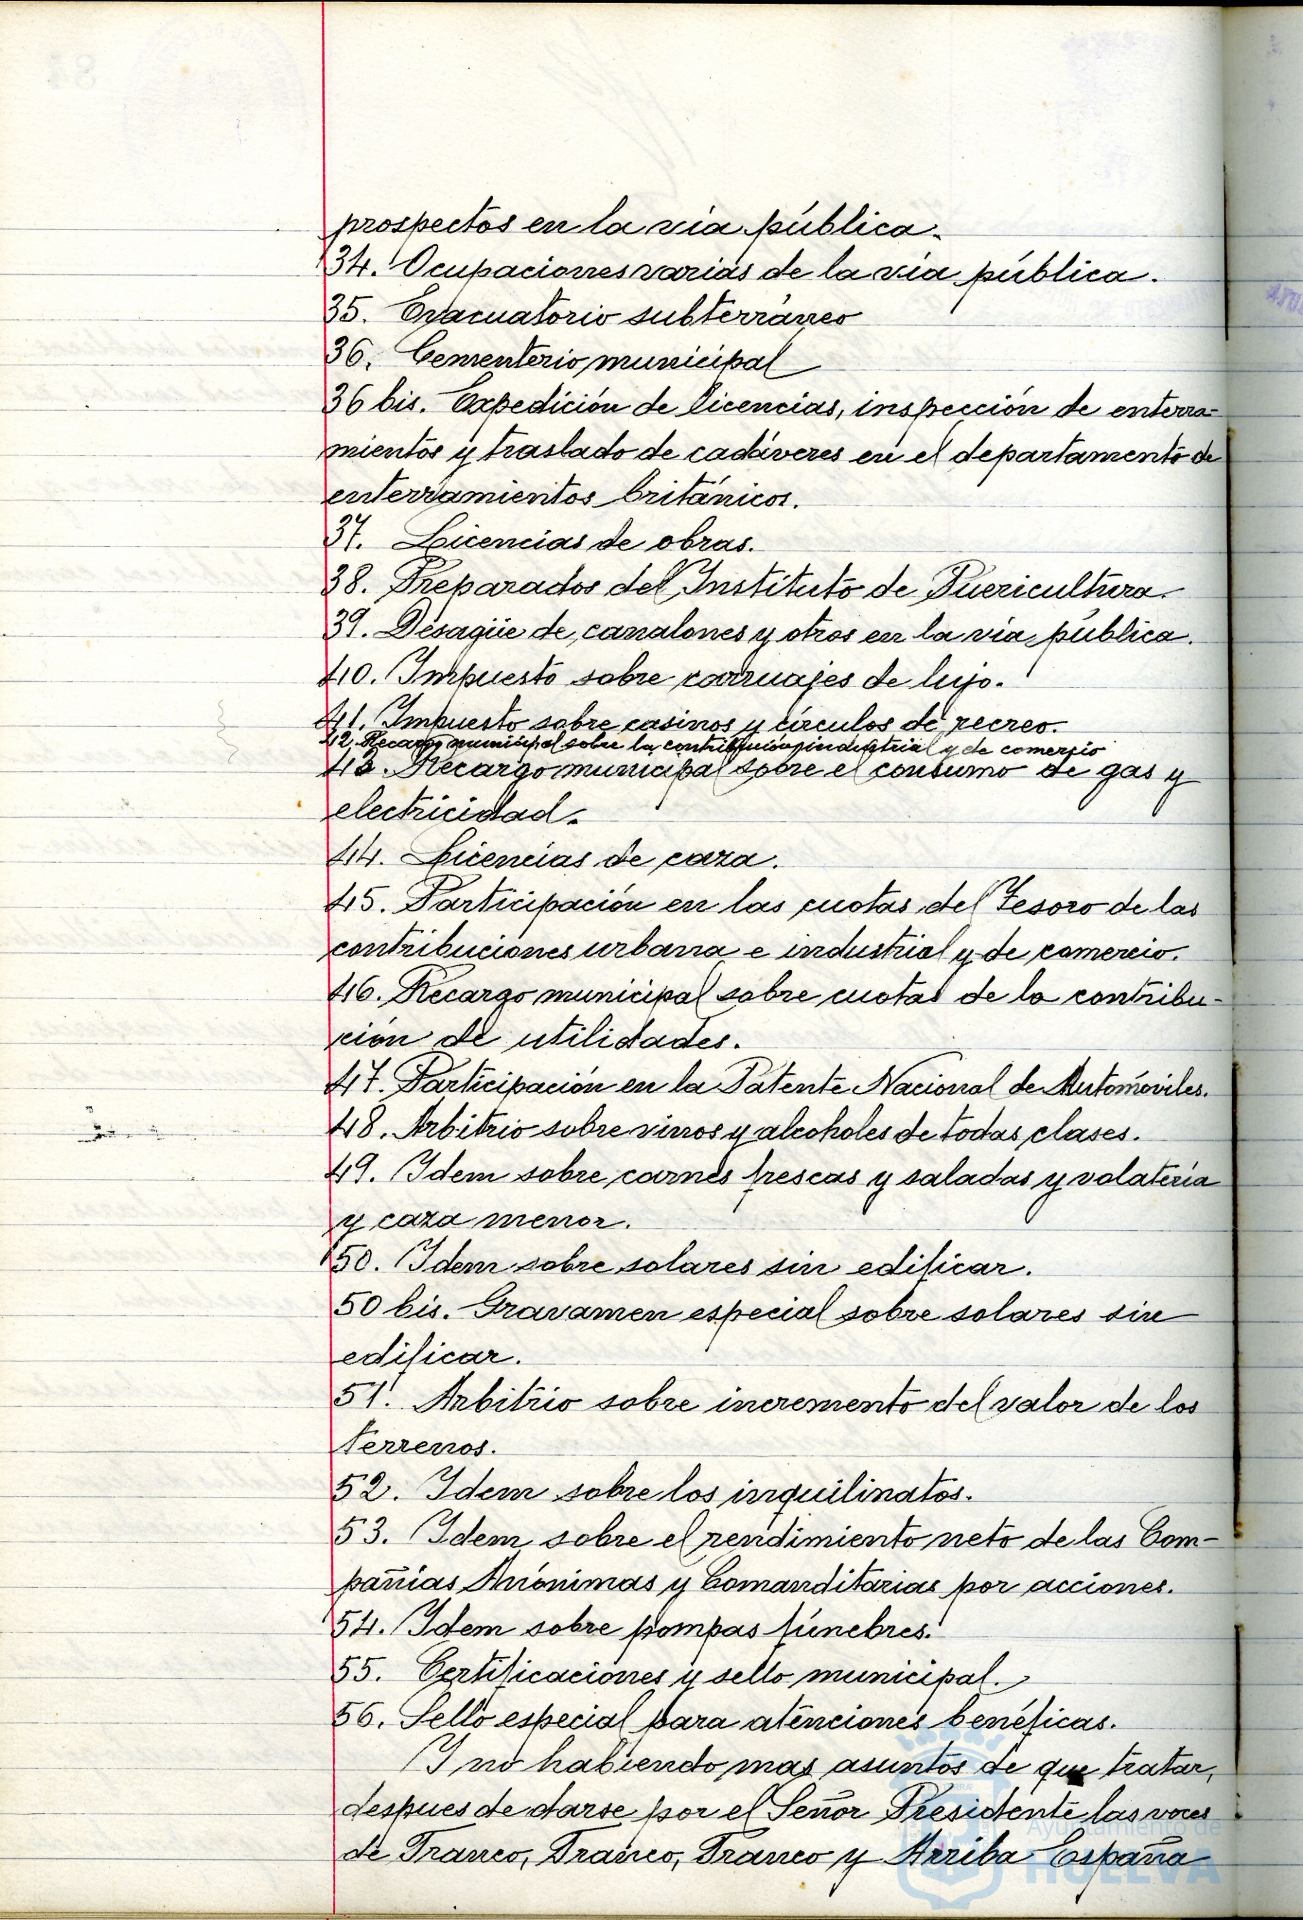 prospectos en la via pública.
34. Ocupaciones varias de la via pública.
35. Evacuatorio subterráneo
36. Cementerio municipal
36 bis. Expedición de licencias, inspección de enterra-
mientos y traslado de cadáveres en el departamento de
enterramientos británicos.
37. Licencias de obras.
38. Preparados del Instituto de Puericultura.
39. Désagüe de canalones y otros en la via pública.
40. Impuesto sobre carruajes de lujo.
41. Impuesto sobre casinos y círculos de recreo.
42. Recargo municipal sobre la contribución industrial y de comercio
43. Recargo municipal sobre el consumo de gas y
electricidad.
44. Licencias de caza.
45. Participación en las cuotas del Tesoro de las
contribuciones urbana e industrial y de comercio.
46. Recargo municipal sobre cuotas de la contribu-
ción de utilidades.
47. Participación en la Patente Nacional de Automóviles.
48. Arbitrio sobre vinos y alcoholes de todas clases.
49. Idem sobre carnes frescas y saladas y volatería
y caza menor.
50. Idem sobre solares sin edificar.
50 bis. Gravamen especial sobre solares sin
edificar.
51. Arbitrio sobre incremento del valor de los
terrenos.
52. Idem sobre los inquilinatos.
53. Idem sobre el rendimiento neto de las Com-
pañias Anónimas y Comanditarias por acciones.
54. Idem sobre pompas fúnebres.
55. Certificaciones y sello municipal.
56. Sello especial para atenciones benéficas.
Y no habiendo mas asuntos de que tratar,
despues de darse por el Señor Presidente las voces
de Franco, Franco, Franco y Arriba España
Ayuntamiento de
HUELVA